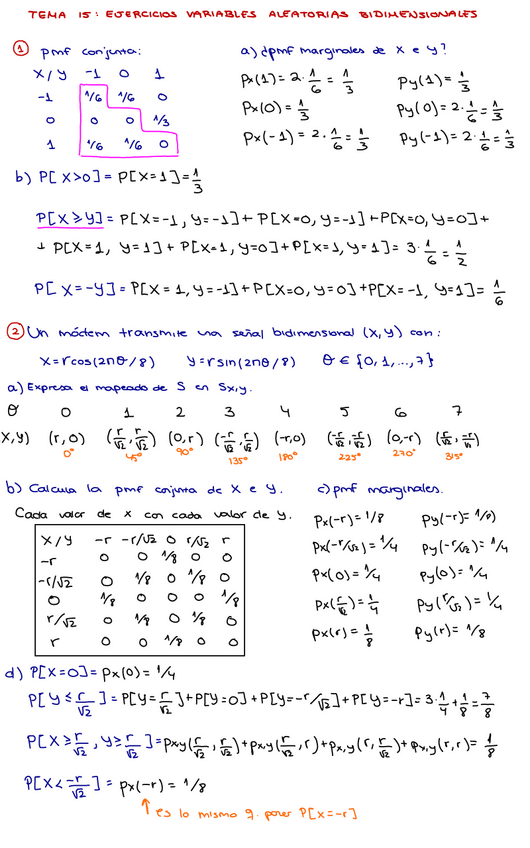 TEMA 15: EJERCICIOS VARIABLES ALEATORIAS BIDIMENSIONALES
① pmf conjunta:
X/Y -1 0 1
-1 1/6 1/6 0
0 0 0 1/3
1 1/6 1/6 0
a) ¿pmf marginales de X e Y?
Px(1) = 2 · 1/6 = 1/3 Py(1) = 1/3
Px(0) = 1/3 Py(0) = 2 · 1/6 = 1/3
Px(-1) = 2 · 1/6 = 1/3 Py(-1) = 2 · 1/6 = 1/3
b) P[X>0] = P[X=1] = 1/3
P[X≥Y] = P[X=-1, Y=-1] + P[X=0, Y=-1] + P[X=0, Y=0] +
+ P[X=1, Y=1] + P[X=1, Y=0] + P[X=1, Y=1] = 3 · 1/6 = 1/2
P[X=-Y] = P[X=1, Y=-1] + P[X=0, Y=0] + P[X=-1, Y=1] = 1/6
② Un módem transmite una señal bidimensional (X,Y) con:
X=rcos(2πθ/8) Y=rsin(2πθ/8) θ ∈ {0, 1, ..., 7}
a) Expresa el mapeado de S en Sx,y.
θ 0 1 2 3 4 5 6 7
X,Y) (r,0) (r/√2, r/√2) (0,r) (-r/√2, r/√2) (-r,0) (-r/√2, -r/√2) (0,-r) (r/√2, -r/√2)
0° 45° 90° 135° 180° 225° 270° 315°
b) Calcula la pmf conjunta de X e Y.
Cada valor de x con cada valor de y.
X/Y -r -r/√2 0 r/√2 r
-r 0 0 1/8 0 0
-r/√2 0 1/8 0 1/8 0
0 1/8 0 0 0 1/8
r/√2 0 1/8 0 1/8 0
r 0 0 1/8 0 0
c) pmf marginales.
Px(-r) = 1/8 Py(-r) = 1/8)
Px(-r/√2) = 1/4 Py(-r/√2) = 1/4
Px(0) = 1/4 Py(0) = 1/4
Px(r/√2) = 1/4 Py(r/√2) = 1/4
Px(r) = 1/8 Py(r) = 1/8
d) P[X=0] = Px(0) = 1/4
P[Y ≤ r/√2] = P[Y = r/√2] + P[Y=0] + P[Y=-r/√2] + P[Y=-r] = 3 · 1/4 + 1/8 = 7/8
P[X ≥ r/√2, Y ≥ r/√2] = Px,y(r/√2, r/√2) + Px,y(r/√2, r) + Px,y(r, r/√2) + Px,y(r, r) = 1/8
P[X < -r/√2] = Px(-r) = 1/8
↑ es lo mismo q. poner P[X=-r]